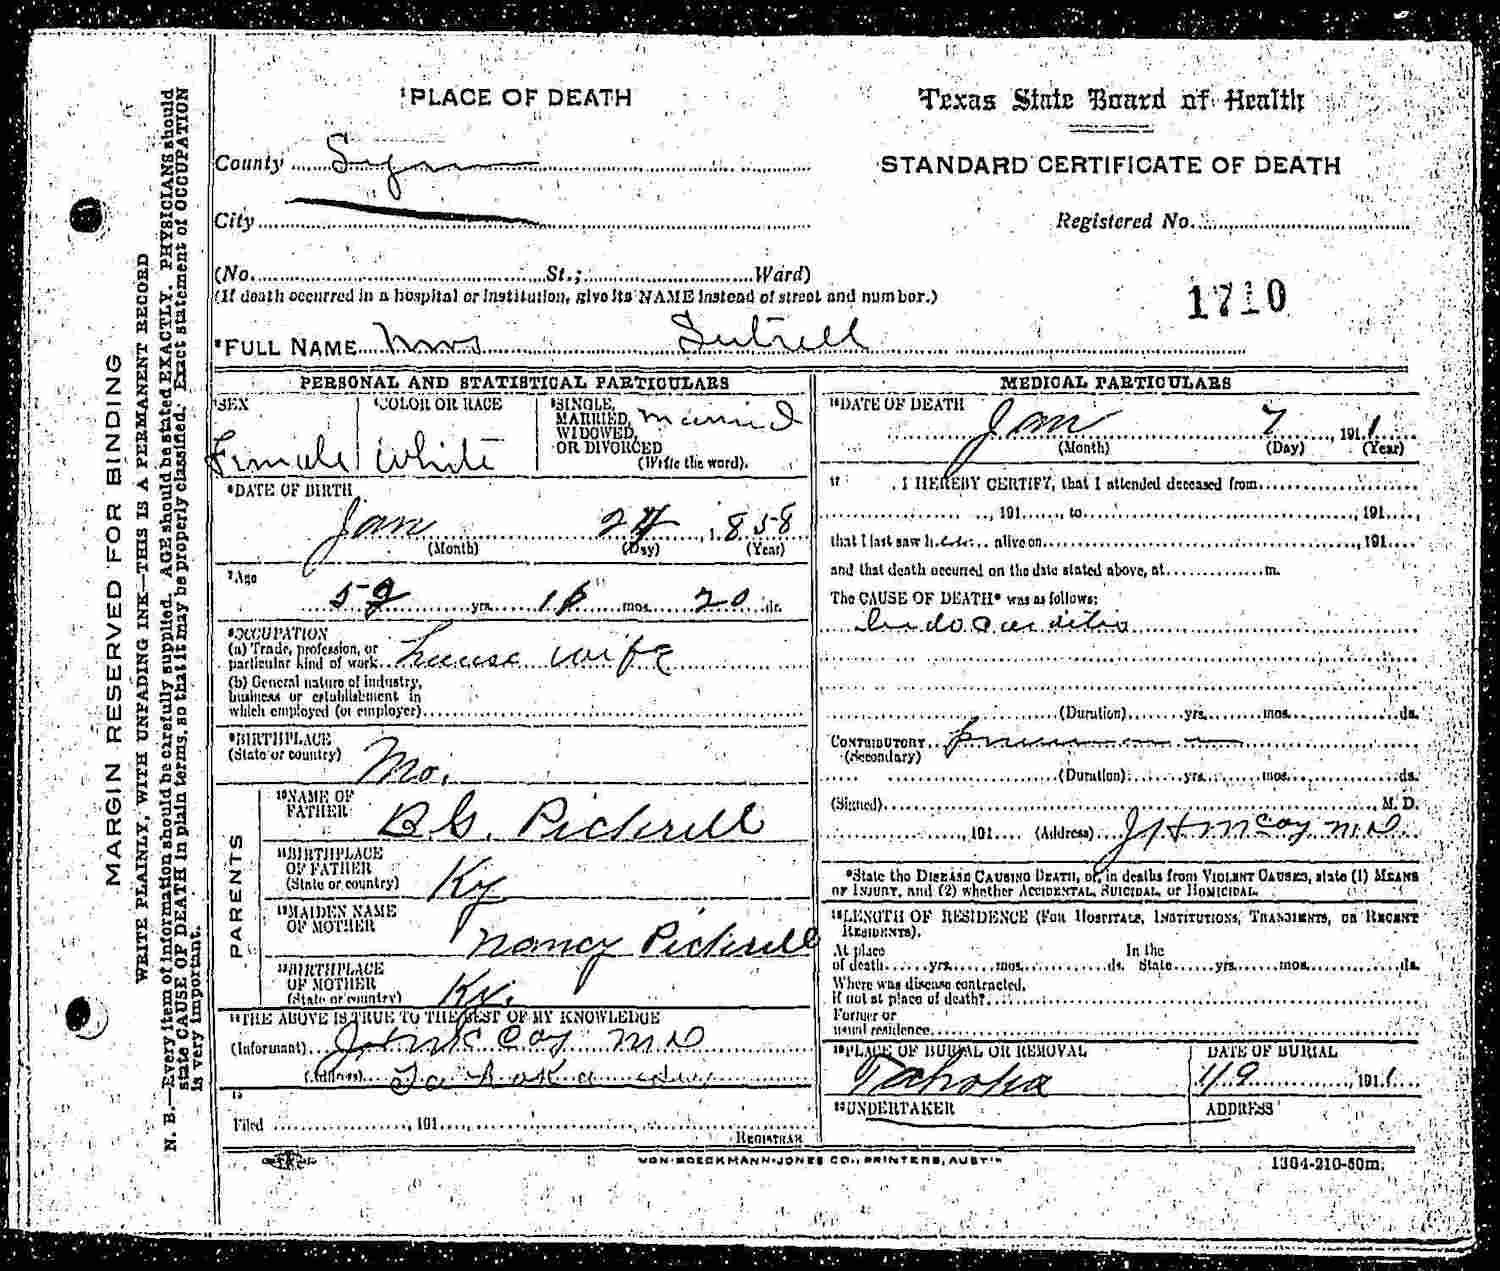 MARGIN RESERVED FOR BINDING
WRITE PLAINLY, WITH UNFADING INK—THIS IS A PERMANENT RECORD
N. B.—Every item of information should be carefully supplied. AGE should be stated EXACTLY. PHYSICIANS should
state CAUSE OF DEATH in plain terms, so that it may be properly classified. Exact statement of OCCUPATION
is very important.
1PLACE OF DEATH
County
City
(No. St.; Ward)
(If death occurred in a hospital or institution, give its NAME instead of street and number.)
Texas State Board of Health
STANDARD CERTIFICATE OF DEATH
Registered No.
1710
2FULL NAME Mrs
PERSONAL AND STATISTICAL PARTICULARS
3SEX
Female
4COLOR OR RACE
White
5SINGLE,
MARRIED,
WIDOWED,
OR DIVORCED
Married
(Write the word).
6DATE OF BIRTH
Jan 1858
(Month) (Day) (Year)
7Age
yrs. mos. 20 ds.
8OCCUPATION
(a) Trade, profession, or
particular kind of work house wife
(b) General nature of industry,
business or establishment in
which employed (or employer)
9BIRTHPLACE
(State or country) Mo.
PARENTS
10NAME OF
FATHER B G. Pickrell
11BIRTHPLACE
OF FATHER
(State or country) Ky
12MAIDEN NAME
OF MOTHER Nancy Pickrell
13BIRTHPLACE
OF MOTHER
(State or country) Ky.
14THE ABOVE IS TRUE TO THE BEST OF MY KNOWLEDGE
(Informant) J H McCoy MD
(Address) Tahoka
15
Filed , 191
REGISTRAR
MEDICAL PARTICULARS
16DATE OF DEATH
Jan 7, 1911
(Month) (Day) (Year)
17 I HEREBY CERTIFY, that I attended deceased from
, 191 , to , 191
that I last saw her alive on , 191
and that death occurred on the date stated above, at m.
The CAUSE OF DEATH* was as follows:
Endocarditis
(Duration) yrs. mos. ds.
CONTRIBUTORY Pneumonia
(Secondary)
(Duration) yrs. mos. ds.
(Signed) , M. D.
, 191 (Address) J H McCoy MD
*State the DISEASE CAUSING DEATH, or, in deaths from VIOLENT CAUSES, state (1) MEANS
OF INJURY, and (2) whether ACCIDENTAL, SUICIDAL, or HOMICIDAL.
18LENGTH OF RESIDENCE (FOR HOSPITALS, INSTITUTIONS, TRANSIENTS, OR RECENT
RESIDENTS).
At place In the
of death yrs. mos. ds. State yrs. mos. ds.
Where was disease contracted,
if not at place of death?
Former or
usual residence
19PLACE OF BURIAL OR REMOVAL
Tahoka
DATE OF BURIAL
1/9, 1911
20UNDERTAKER
ADDRESS
VON-BOECKMANN-JONES CO., PRINTERS, AUSTIN
1304-210-50m.